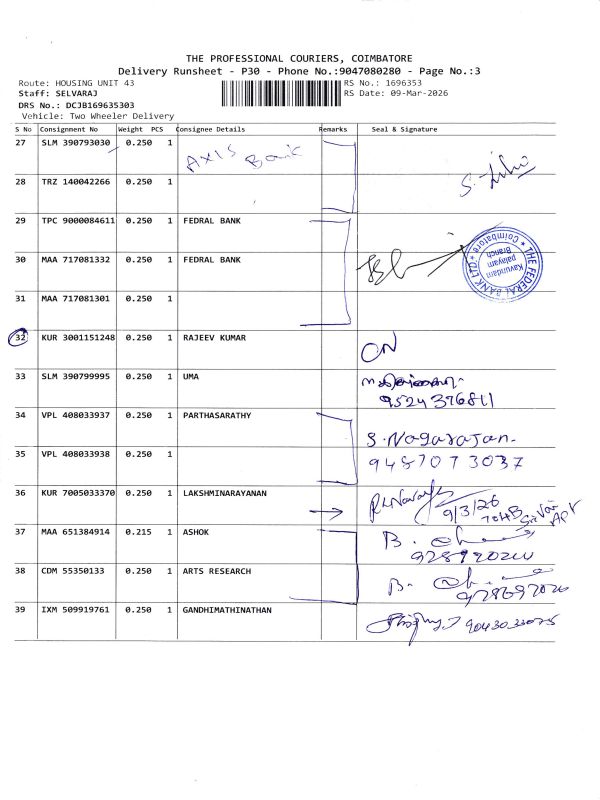 THE PROFESSIONAL COURIERS, COIMBATORE
Delivery Runsheet - P30 - Phone No.:9047080280 - Page No.:3
Route: HOUSING UNIT 43 RS No.: 1696353
Staff: SELVARAJ RS Date: 09-Mar-2026
DRS No.: DCJB169635303
Vehicle: Two Wheeler Delivery
S No Consignment No Weight PCS Consignee Details Remarks Seal & Signature
27 SLM 390793030 0.250 1 AXIS Bank
28 TRZ 140042266 0.250 1
29 TPC 9000084611 0.250 1 FEDRAL BANK
30 MAA 717081332 0.250 1 FEDRAL BANK
THE FEDERAL BANK LTD * Coimbatore *
Kavundam
palayam
Branch
31 MAA 717081301 0.250 1
32 KUR 3001151248 0.250 1 RAJEEV KUMAR ON
33 SLM 390799995 0.250 1 UMA
9524376811
34 VPL 408033937 0.250 1 PARTHASARATHY S. Nagarajan.
35 VPL 408033938 0.250 1 9487073037
36 KUR 7005033370 0.250 1 LAKSHMINARAYANAN
9/3/26
37 MAA 651384914 0.215 1 ASHOK B.
38 CDM 55350133 0.250 1 ARTS RESEARCH B.
39 IXM 509919761 0.250 1 GANDHIMATHINATHAN